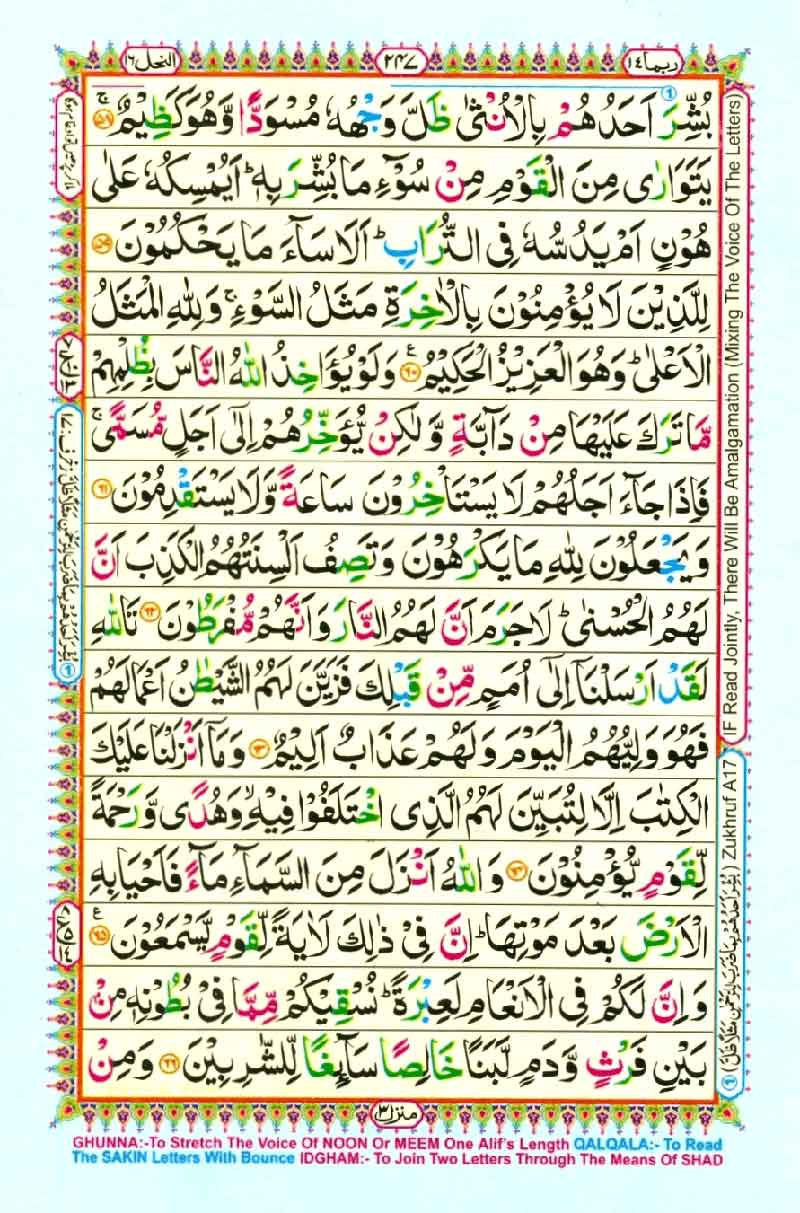 ربما ١٤
٢٤٧
النحل ١٦
بُشِّرَ اَحَدُهُمْ بِالْاُنْثٰى ظَلَّ وَجْهُهٗ مُسْوَدًّا وَّهُوَ كَظِيْمٌۚ ٥٨
يَتَوَارٰى مِنَ الْقَوْمِ مِنْ سُوْٓءِ مَا بُشِّرَ بِهٖؕ اَيُمْسِكُهٗ عَلٰى
هُوْنٍ اَمْ يَدُسُّهٗ فِى التُّرَابِؕ اَلَا سَآءَ مَا يَحْكُمُوْنَ ٥٩
لِلَّذِيْنَ لَا يُؤْمِنُوْنَ بِالْاٰخِرَةِ مَثَلُ السَّوْءِۚ وَلِلّٰهِ الْمَثَلُ
الْاَعْلٰىؕ وَهُوَ الْعَزِيْزُ الْحَكِيْمُ ٦٠ وَلَوْ يُؤَاخِذُ اللّٰهُ النَّاسَ بِظُلْمِهِمْ
مَّا تَرَكَ عَلَيْهَا مِنْ دَآبَّةٍ وَّلٰكِنْ يُّؤَخِّرُهُمْ اِلٰٓى اَجَلٍ مُّسَمًّىۚ
فَاِذَا جَآءَ اَجَلُهُمْ لَا يَسْتَاْخِرُوْنَ سَاعَةً وَّلَا يَسْتَقْدِمُوْنَ ٦١
وَيَجْعَلُوْنَ لِلّٰهِ مَا يَكْرَهُوْنَ وَتَصِفُ اَلْسِنَتُهُمُ الْكَذِبَ اَنَّ
لَهُمُ الْحُسْنٰىؕ لَا جَرَمَ اَنَّ لَهُمُ النَّارَ وَاَنَّهُمْ مُّفْرَطُوْنَ ٦٢ تَاللّٰهِ
لَقَدْ اَرْسَلْنَاۤ اِلٰٓى اُمَمٍ مِّنْ قَبْلِكَ فَزَيَّنَ لَهُمُ الشَّيْطٰنُ اَعْمَالَهُمْ
فَهُوَ وَلِيُّهُمُ الْيَوْمَ وَلَهُمْ عَذَابٌ اَلِيْمٌ ٦٣ وَمَاۤ اَنْزَلْنَا عَلَيْكَ
الْكِتٰبَ اِلَّا لِتُبَيِّنَ لَهُمُ الَّذِى اخْتَلَفُوْا فِيْهِۙ وَهُدًى وَّرَحْمَةً
لِّقَوْمٍ يُّؤْمِنُوْنَ ٦٤ وَاللّٰهُ اَنْزَلَ مِنَ السَّمَآءِ مَآءً فَاَحْيَا بِهِ
الْاَرْضَ بَعْدَ مَوْتِهَاؕ اِنَّ فِىْ ذٰلِكَ لَاٰيَةً لِّقَوْمٍ يَّسْمَعُوْنَ ٦٥
وَاِنَّ لَكُمْ فِى الْاَنْعَامِ لَعِبْرَةًؕ نُسْقِيْكُمْ مِّمَّا فِىْ بُطُوْنِهٖ مِنْ
بَيْنِ فَرْثٍ وَّدَمٍ لَّبَنًا خَالِصًا سَآئِغًا لِّلشّٰرِبِيْنَ ٦٦ وَمِنْ
منزل ٣
Zukhruf A17 IF Read Jointly, There Will Be Amalgamation (Mixing The Voice Of The Letters)
GHUNNA:-To Stretch The Voice Of NOON Or MEEM One Alif's Length QALQALA:- To Read
The SAKIN Letters With Bounce IDGHAM:- To Join Two Letters Through The Means Of SHAD